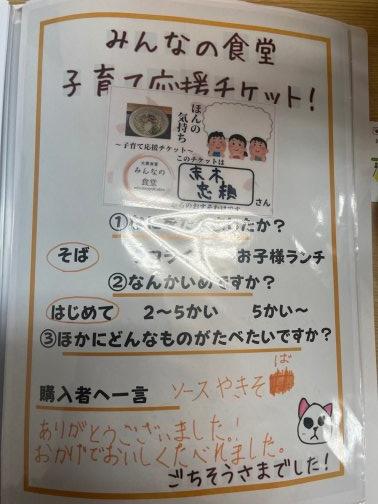 みんなの食堂
子育て応援チケット!
ほんの
気持ち
~子育て応援チケット~
みんなの
食堂
このチケットは
末木
忠相
さん
か?
そば
お子様ランチ
②なんかいめですか?
はじめて
2~5かい
5かい~
③ほかにどんなものがたべたいですか?
購入者へ一言
ソースやきそば
ありがとうございました!
おかげでおいしくたべれました。
ごちそうさまでした!